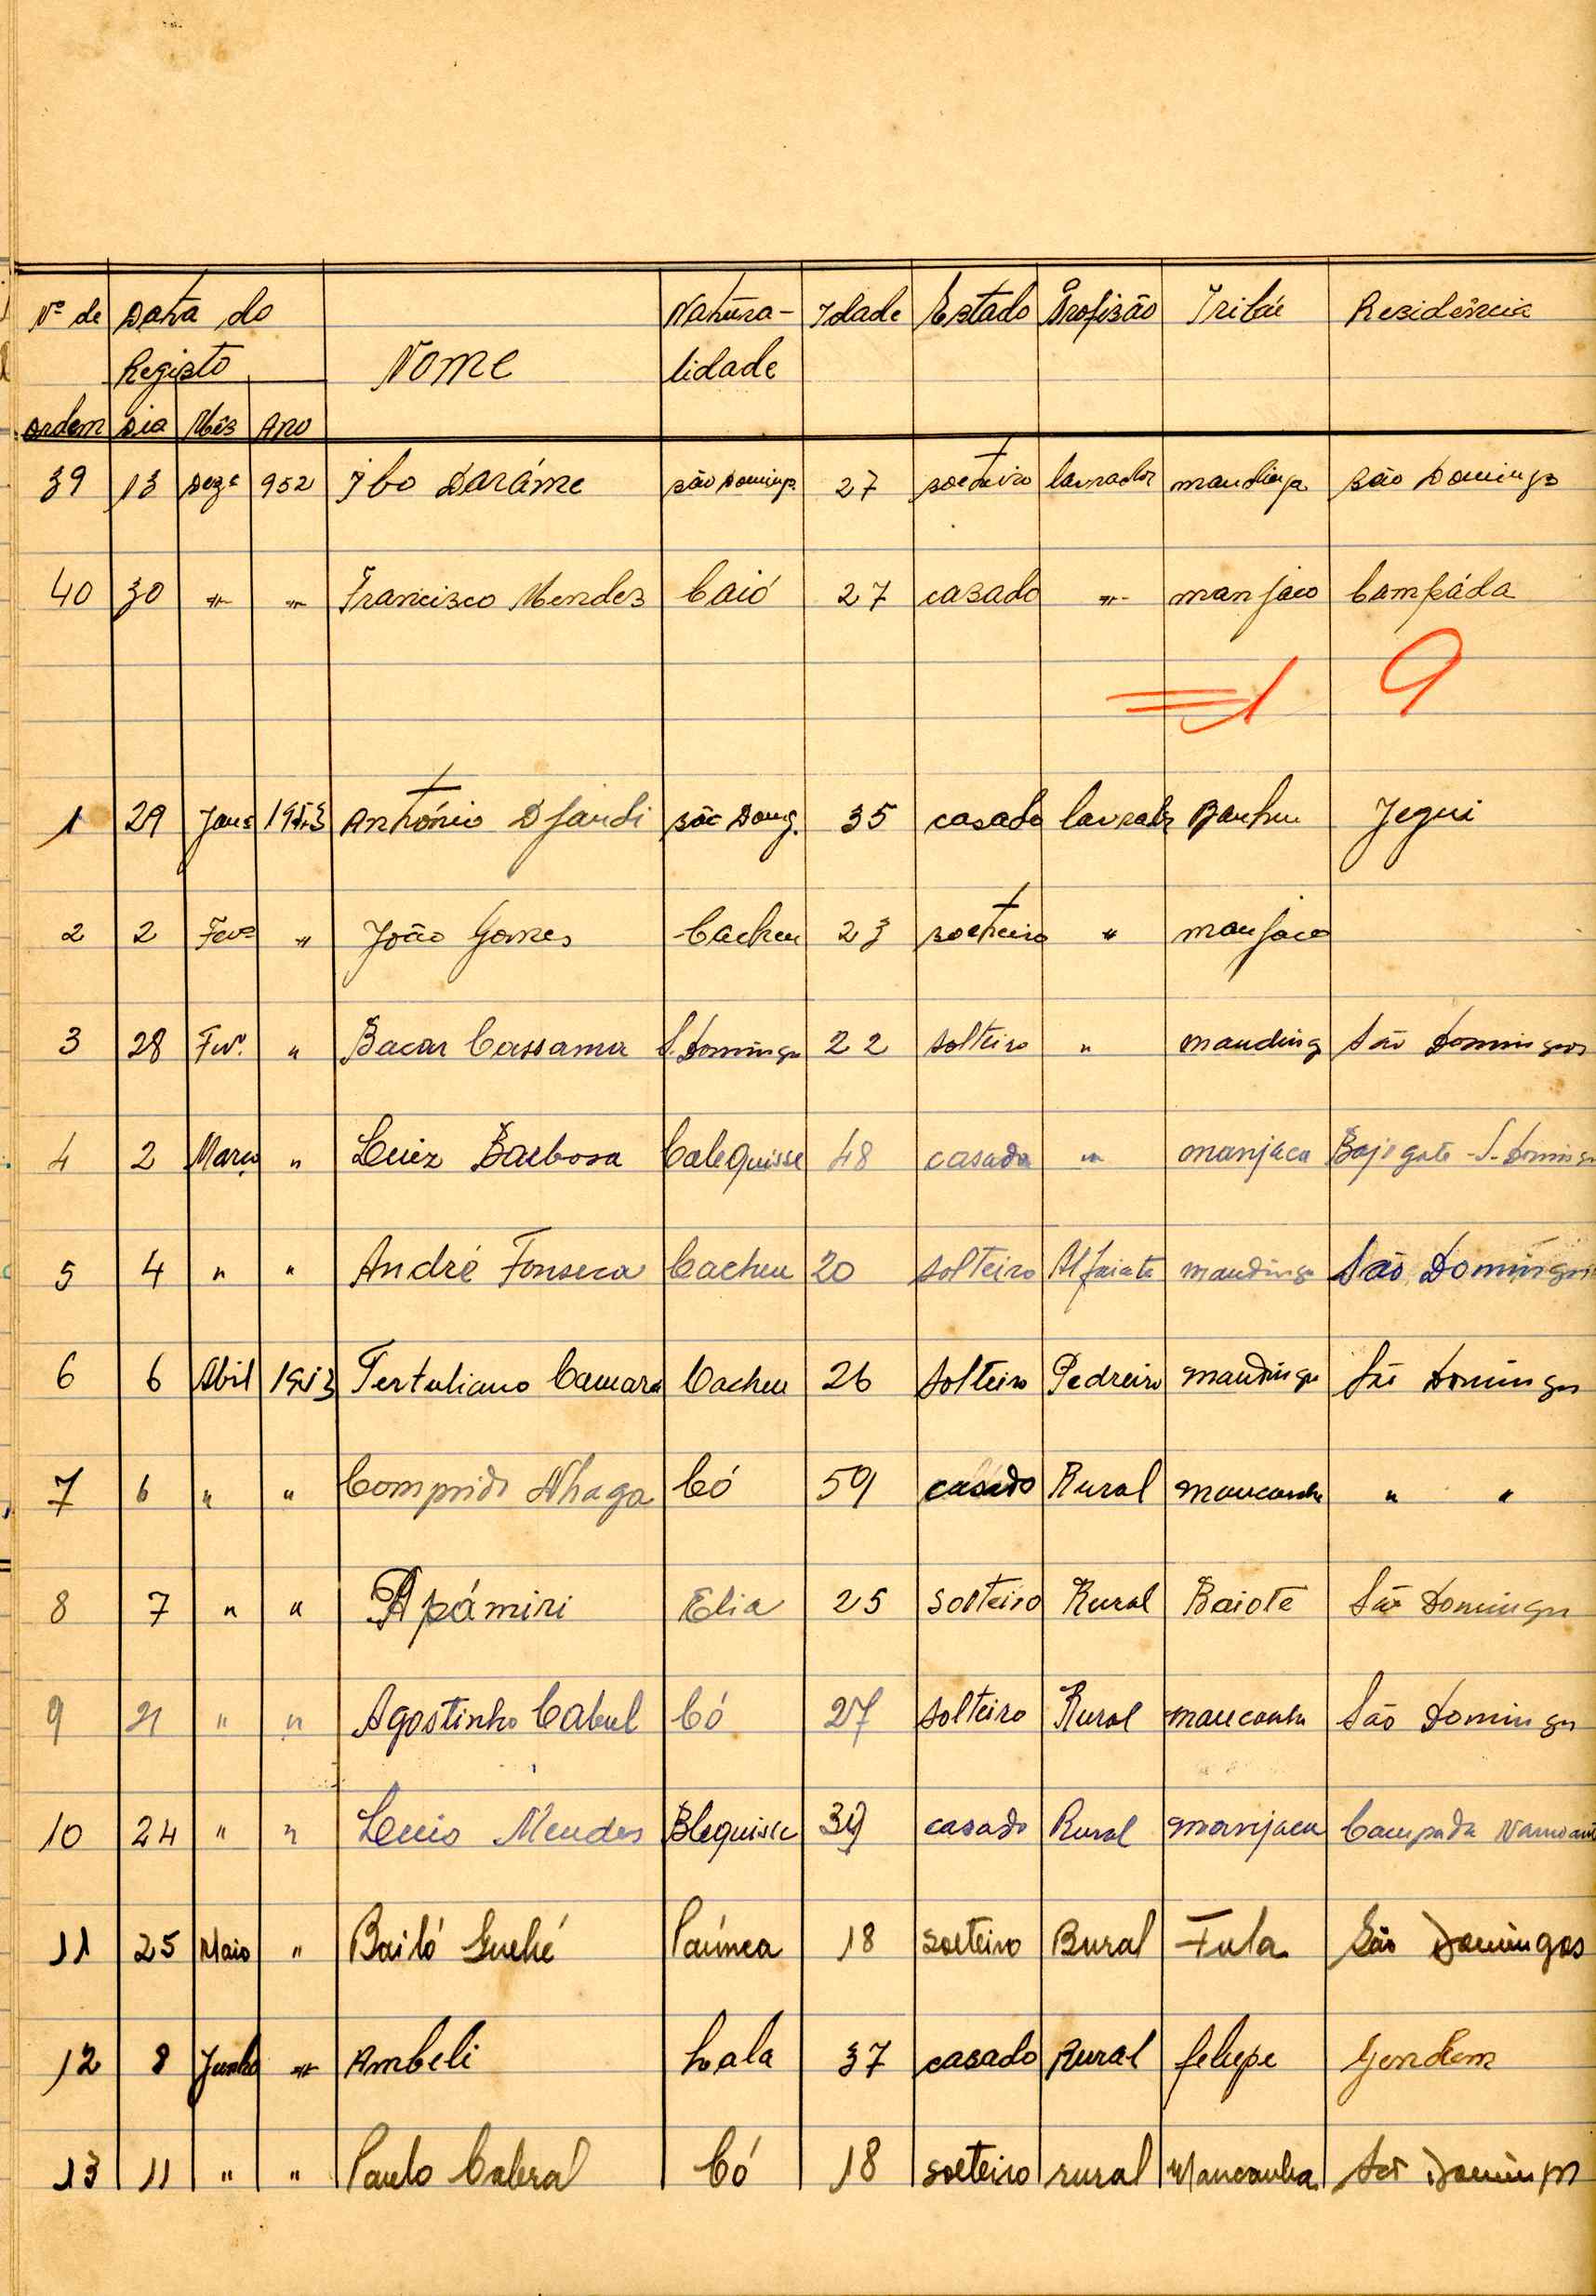 Nº de Data do Natura- Idade Estado Profisão Tribú Residência
Registo Nome lidade
ordem Dia Mês Ano
39 13 Dezº 952 Ibo Daráme são Domingos 27 solteiro lavrador mandinga são Domingos
40 30 " " Francisco Mendes Caió 27 casado " manjaco Campáda
9
1 29 Janº 1953 António Djandi são Domg. 35 casado lavrador Banhu Jegui
2 2 Fevº " João Gomes Cacheu 23 solteiro " manjaco
3 28 Fevº. " Bacar Cassama S. Domingos 22 solteiro " manding São Domingos
4 2 Março " Luiz Barbosa Calequisse 48 casado " manjaca S. Domingos
5 4 " " André Fonseca Cacheu 20 solteiro Alfaiate mandinga São Domingos
6 6 Abil 1953 Tertuliano Camara Cacheu 26 solteiro Pedreiro mandinga São Domingos
7 6 " " Comprido Nhaga Có 59 casado Rural mancanha " "
8 7 " " Apámiri Elia 25 solteiro Rural Baiote São Domingos
9 21 " " Agostinho Cabul Có 27 solteiro Rural mancanha São Domingos
10 24 " " Lucio Mendes Blequisse 39 casado Rural manjaca Campada
11 25 Maio " Bailó Guehé Paúnca 18 solteiro Rural Fula São Domingos
12 8 Junho " Ambeli Lala 37 casado Rural felupe Gendem
13 11 " " Paulo Cabral Có 18 solteiro rural Mancanha São Domingos